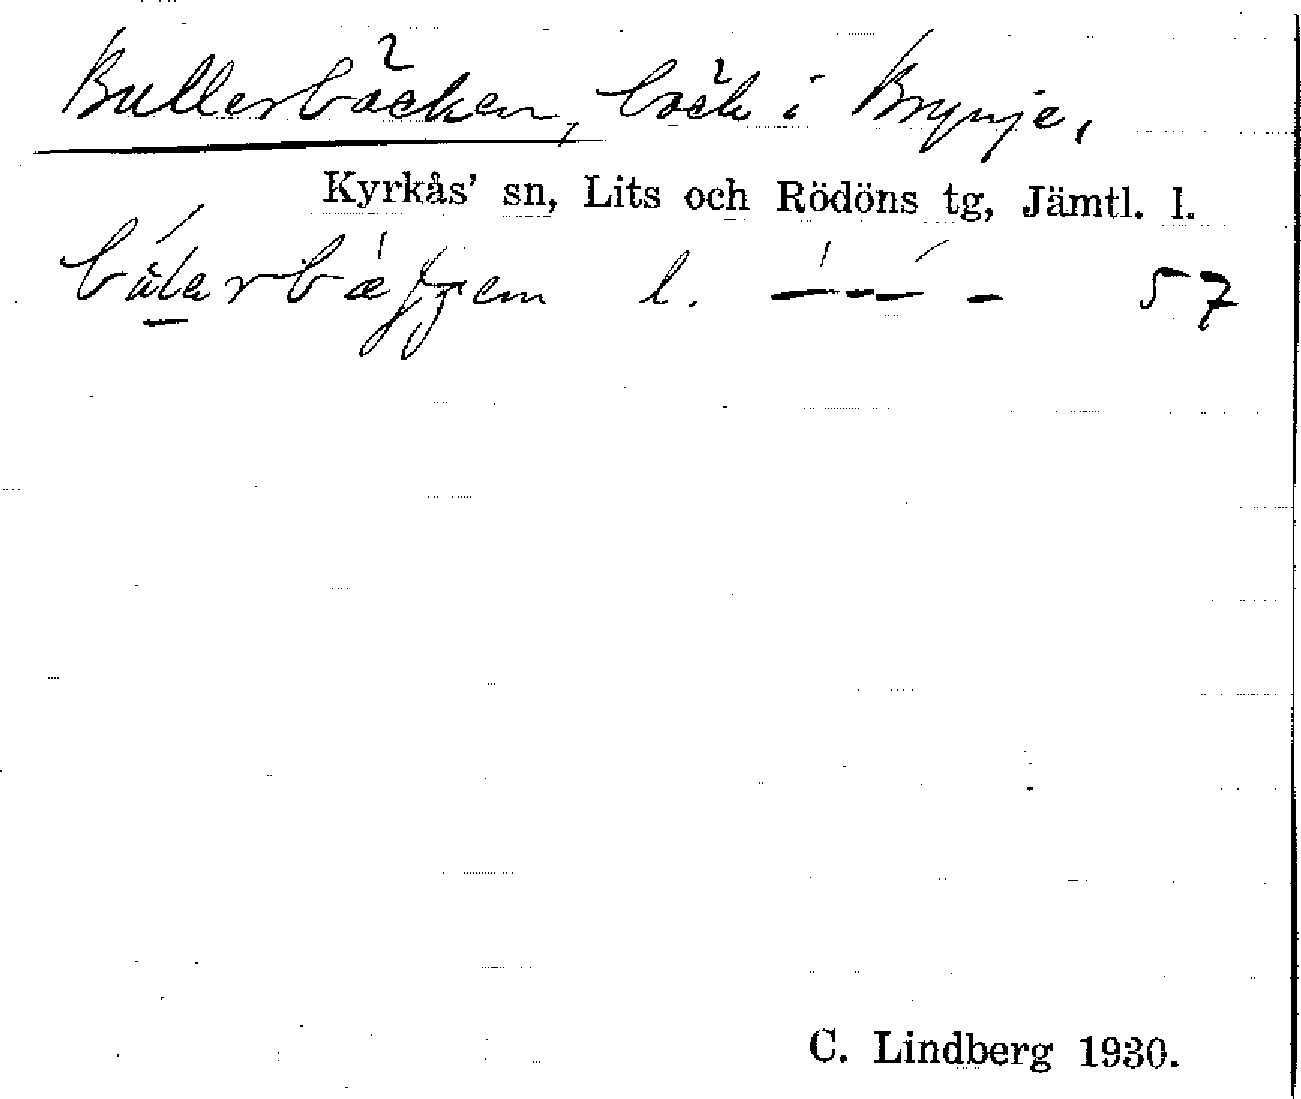 Bullerbäcken, bäck i Brynje,
Kyrkås' sn, Lits och Rödöns tg, Jämtl. l.
l. 57
C. Lindberg 1930.